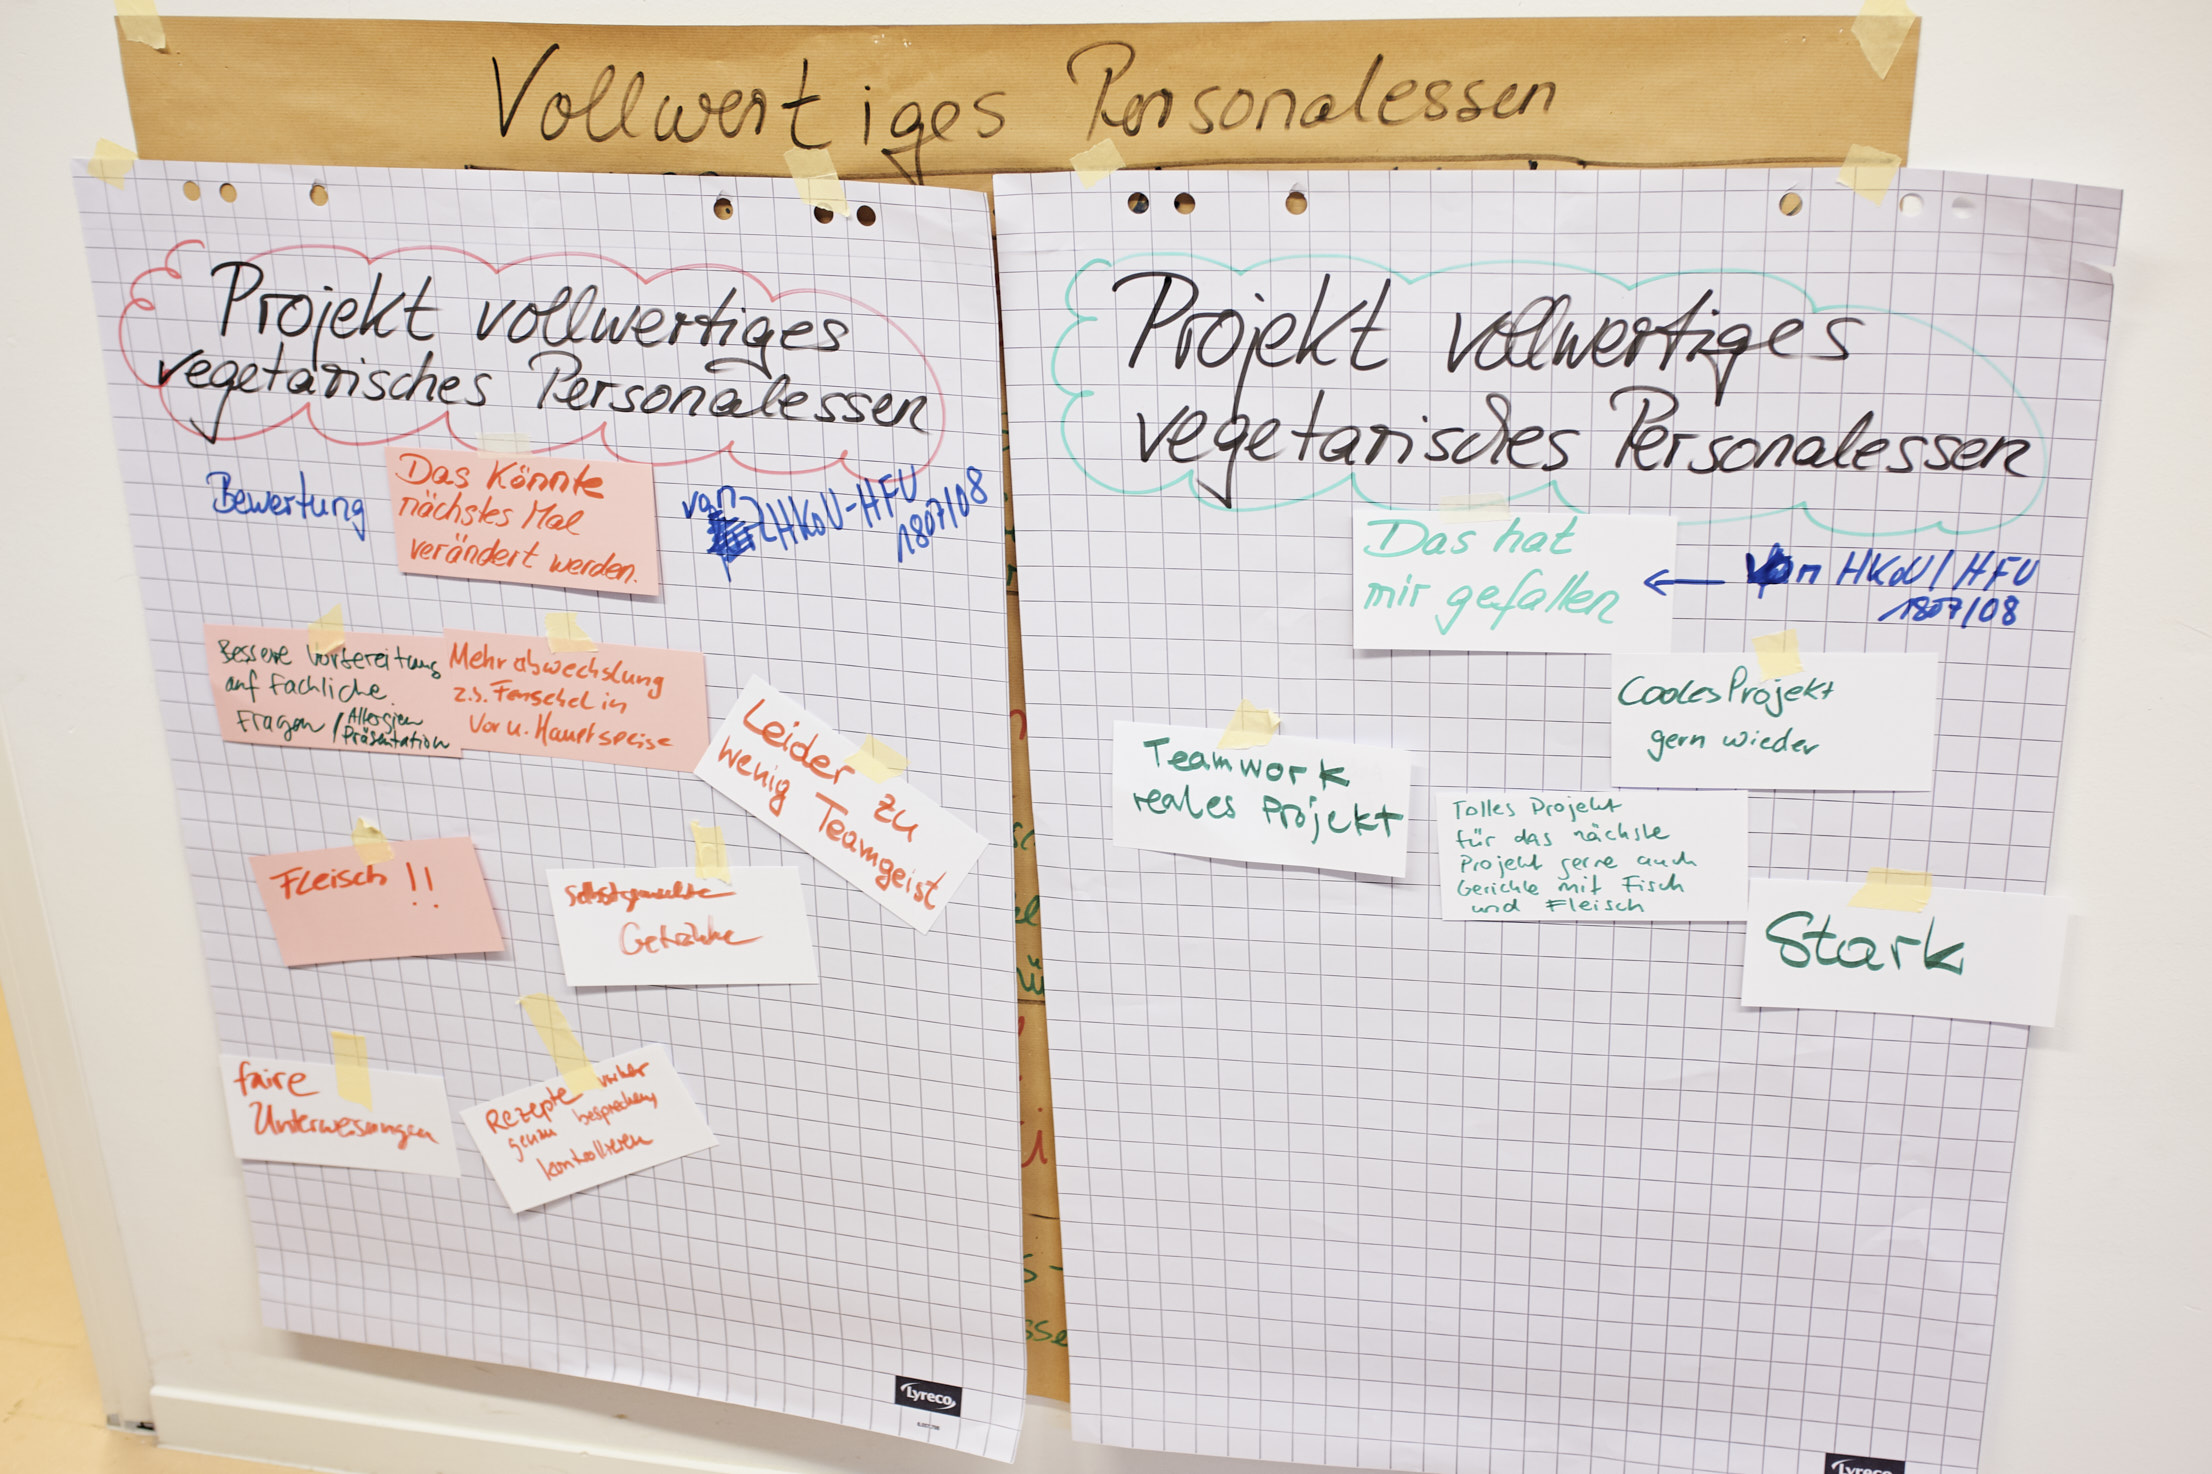 Vollwertiges Personalessen
Projekt vollwertiges
vegetarisches Personalessen
Bewertung
Das Könnte
nächstes Mal
verändert werden.
von
HKoU-HFU
1807/08
Bessere Vorbereitung
auf Fachliche
Fragen / Allergien
Präsentation
Mehr abwechslung
z.B. Fenschel in
Vor u. Hauptspeise
Leider zu
wenig Teamgeist
Fleisch !!
Selbstgemachte
Getränke
faire
Unterweisungen
Rezepte vorher
genau besprechen
kontrollieren
Lyreco
Projekt vollwertiges
vegetarisches Personalessen
Das hat
mir gefallen
von HKoU/HFU
1807/08
Cooles Projekt
gern wieder
Teamwork
reales Projekt
Tolles Projekt
für das nächste
Projekt gerne auch
Gerichte mit Fisch
und Fleisch
Stark
Lyreco